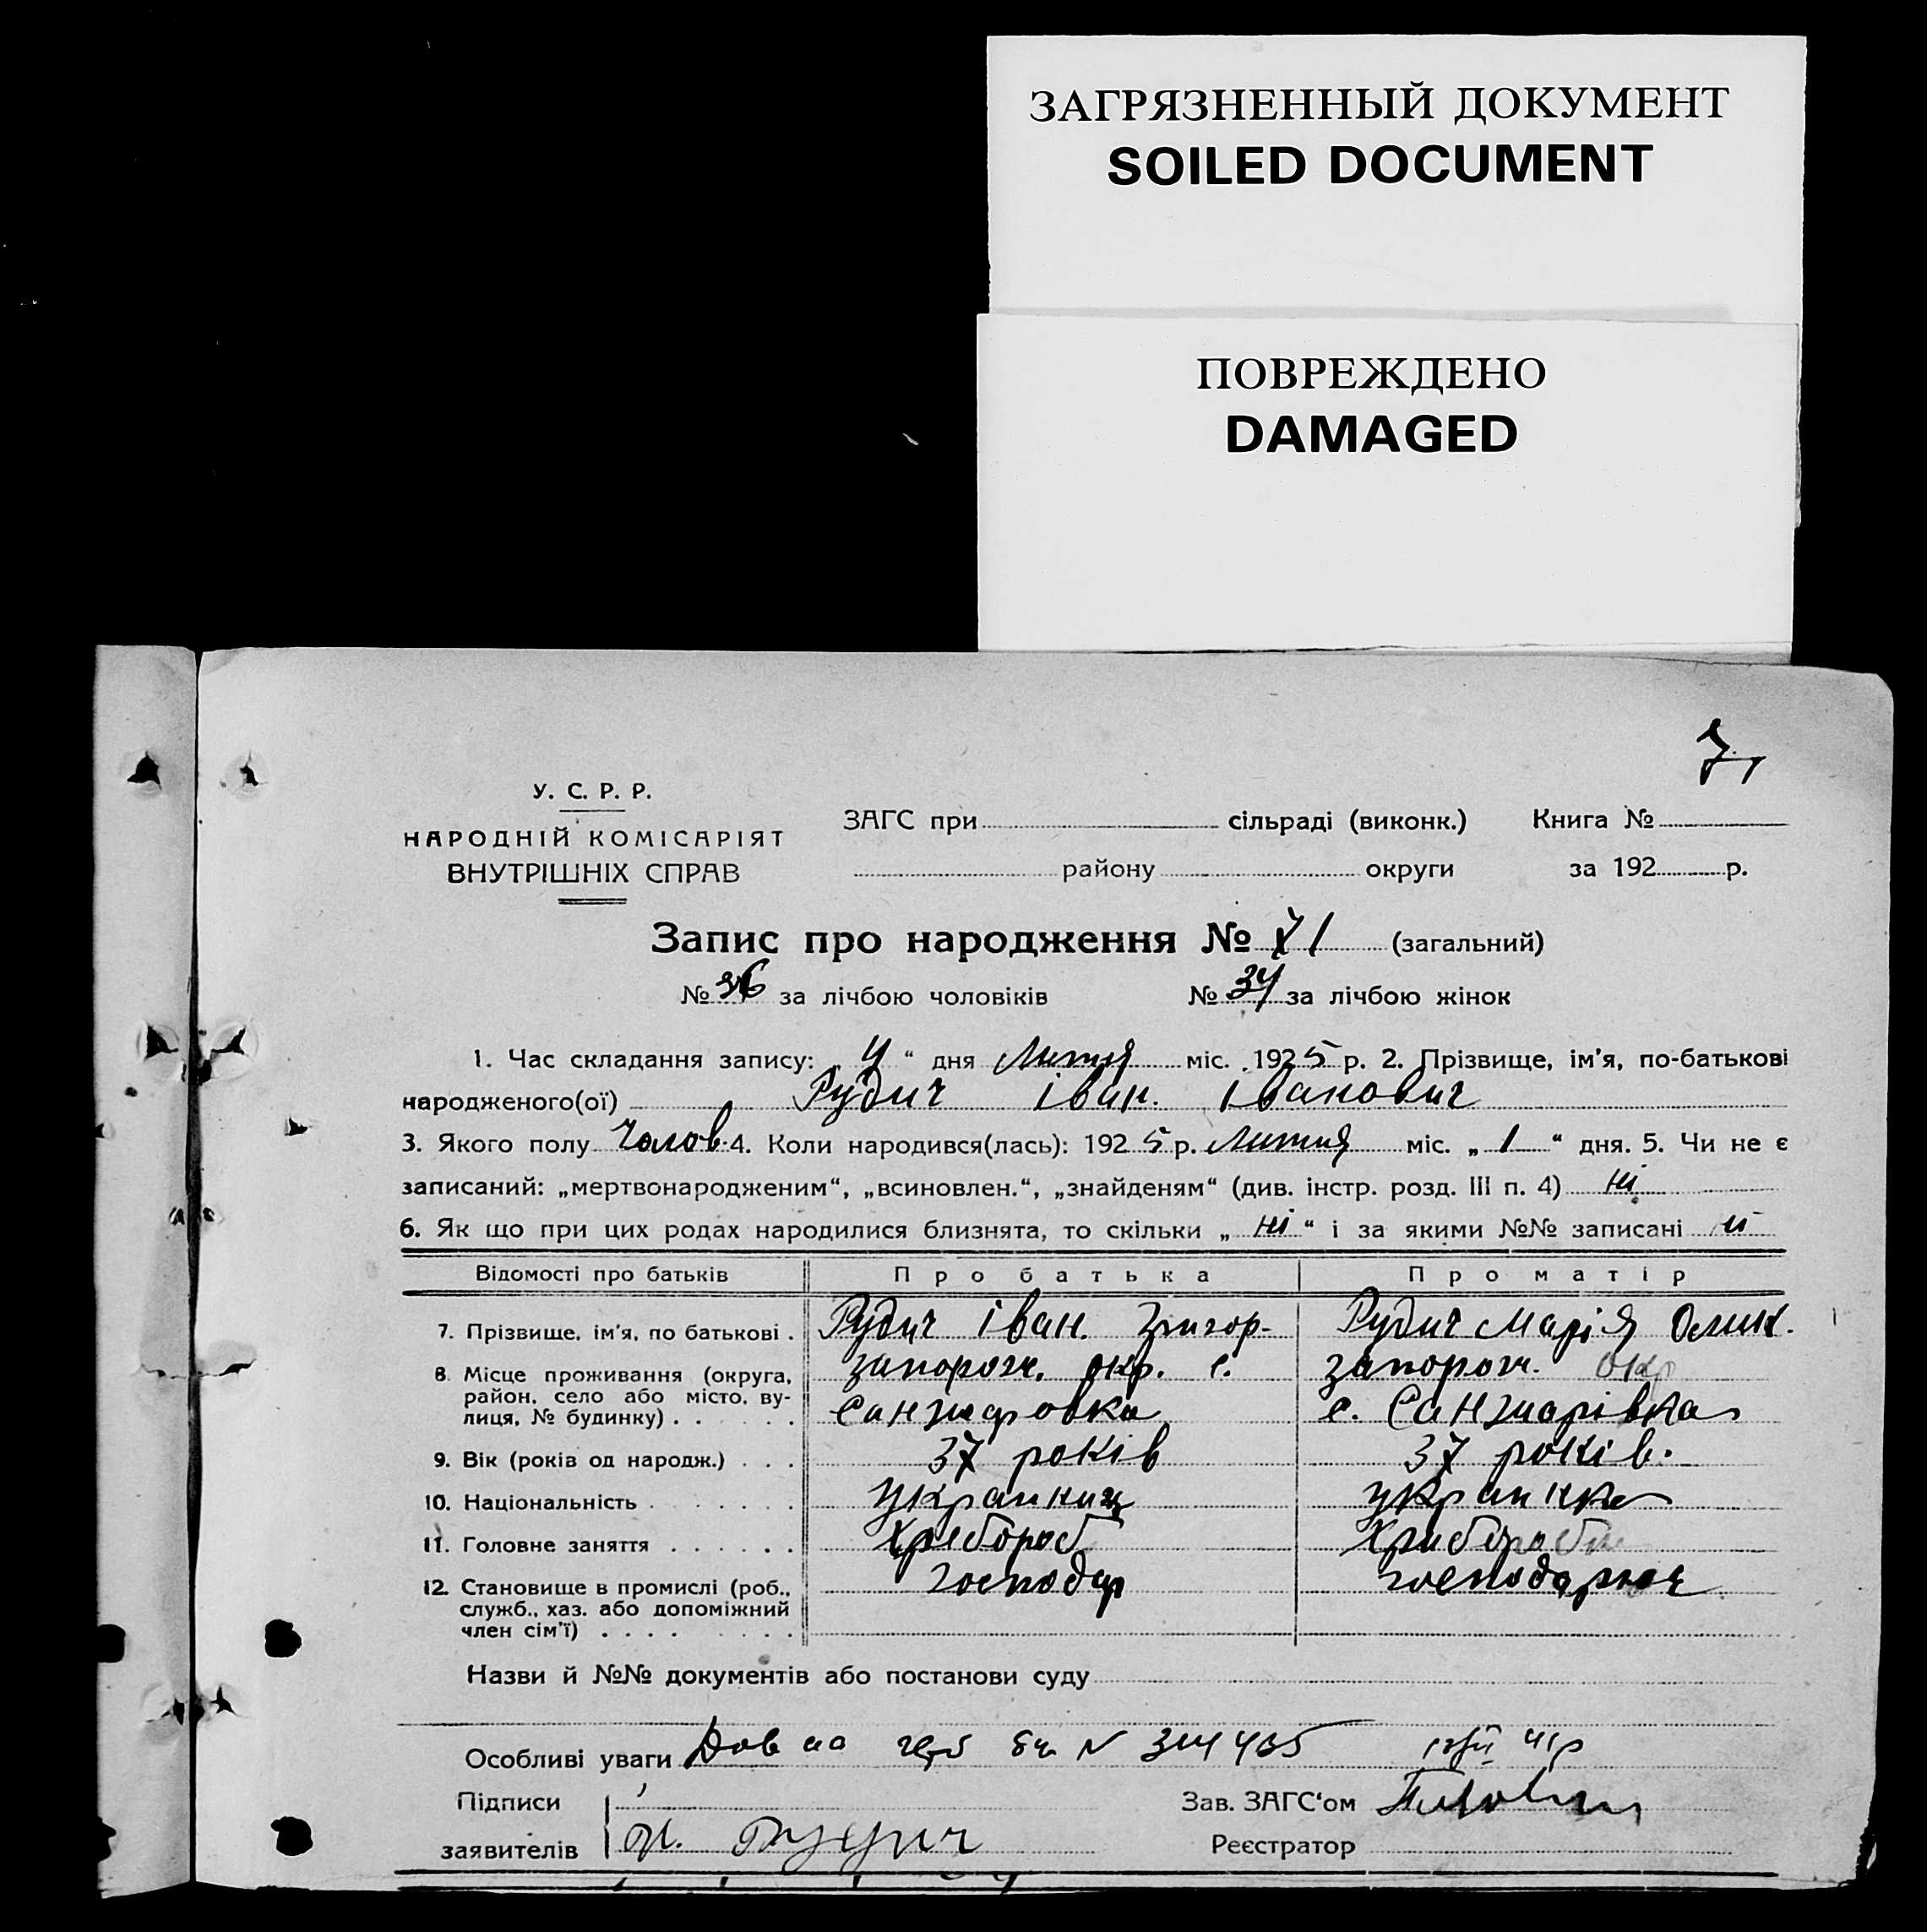 ЗАГРЯЗНЕННЫЙ ДОКУМЕНТ
SOILED DOCUMENT
ПОВРЕЖДЕНО
DAMAGED
У. С. Р. Р.
НАРОДНІЙ КОМІСАРІЯТ
ВНУТРІШНІХ СПРАВ
ЗАГС при сільраді (виконк.) Книга №
району округи за 192 р.
Запис про народження № 71 (загальний)
№ 36 за лічбою чоловіків № 34 за лічбою жінок
1. Час складання запису: „ 4 “ дня Лютня міс. 1925 р. 2. Прізвище, ім'я, по-батькові
народженого(ої) Рудич Іван. Іванович
3. Якого полу Чолов. 4. Коли народився(лась): 1925 р. Лютня міс. „ 1 “ дня. 5. Чи не є
записаний: „мертвонародженим“, „всиновлен.“, „знайденям“ (див. інстр. розд. III п. 4) ні
6. Як що при цих родах народилися близнята, то скільки „ ні “ і за якими №№ записані ні
Відомості про батьків Про батька Про матір
7. Прізвище, ім'я, по батькові . Рудич Іван. Григор. Рудич Марія
8. Місце проживання (округа, район, село або місто, вулиця, № будинку) . . запорож. окр. с. запорож. окр
Санжаровка с. Санжарівка
9. Вік (років од народж.) . . . 37 років 37 років.
10. Національність . . . . . . українка
11. Головне заняття . . . . . . Хлібороб
12. Становище в промислі (роб., служб., хаз. або допоміжний член сім'ї) . . . . господар
Назви й №№ документів або постанови суду
Особливі уваги N 314465
Підписи
заявителів
Зав. ЗАГС'ом
Реєстратор